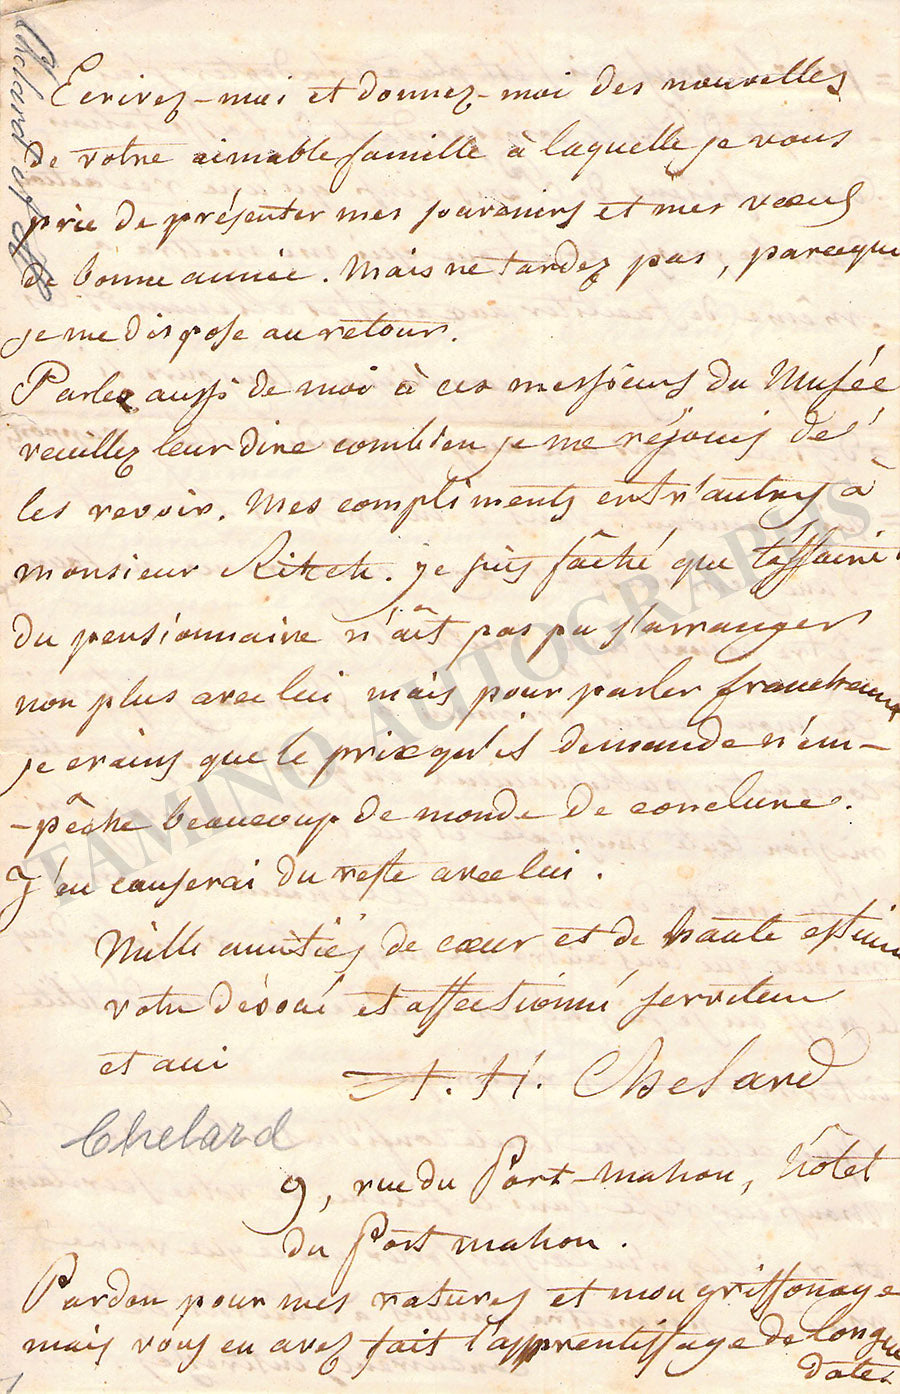 Ecrivez-moi et donnez-moi des nouvelles
de votre aimable famille à laquelle je vous
prie de présenter mes souvenirs et mes vœux
de bonne année. Mais ne tardez pas, parceque
je me dispose au retour.
Parlez aussi de moi à ces messieurs du Musée
veuillez leur dire combien je me réjouis de
les revoir. Mes compliments entr'autres à
monsieur je suis fâché que l'affaire
du pensionnaire n'ait pas pu s'arranger
non plus avec lui mais pour parler franchement
je crains que le prix qu'il demande n'em-
-pêche beaucoup de monde de conclure.
J'en causerai du reste avec lui.
Mille amitiés de cœur et de haute estime
votre dévoué et affectionné serviteur
et ami
A. H. Chelard
Chelard
9, rue du Port-mahon, hôtel
du Port mahon.
Pardon pour mes ratures et mon griffonage
mais vous en avez fait l'apprentissage de longue
date.
Chelard
TAMINO AUTOGRAPHS